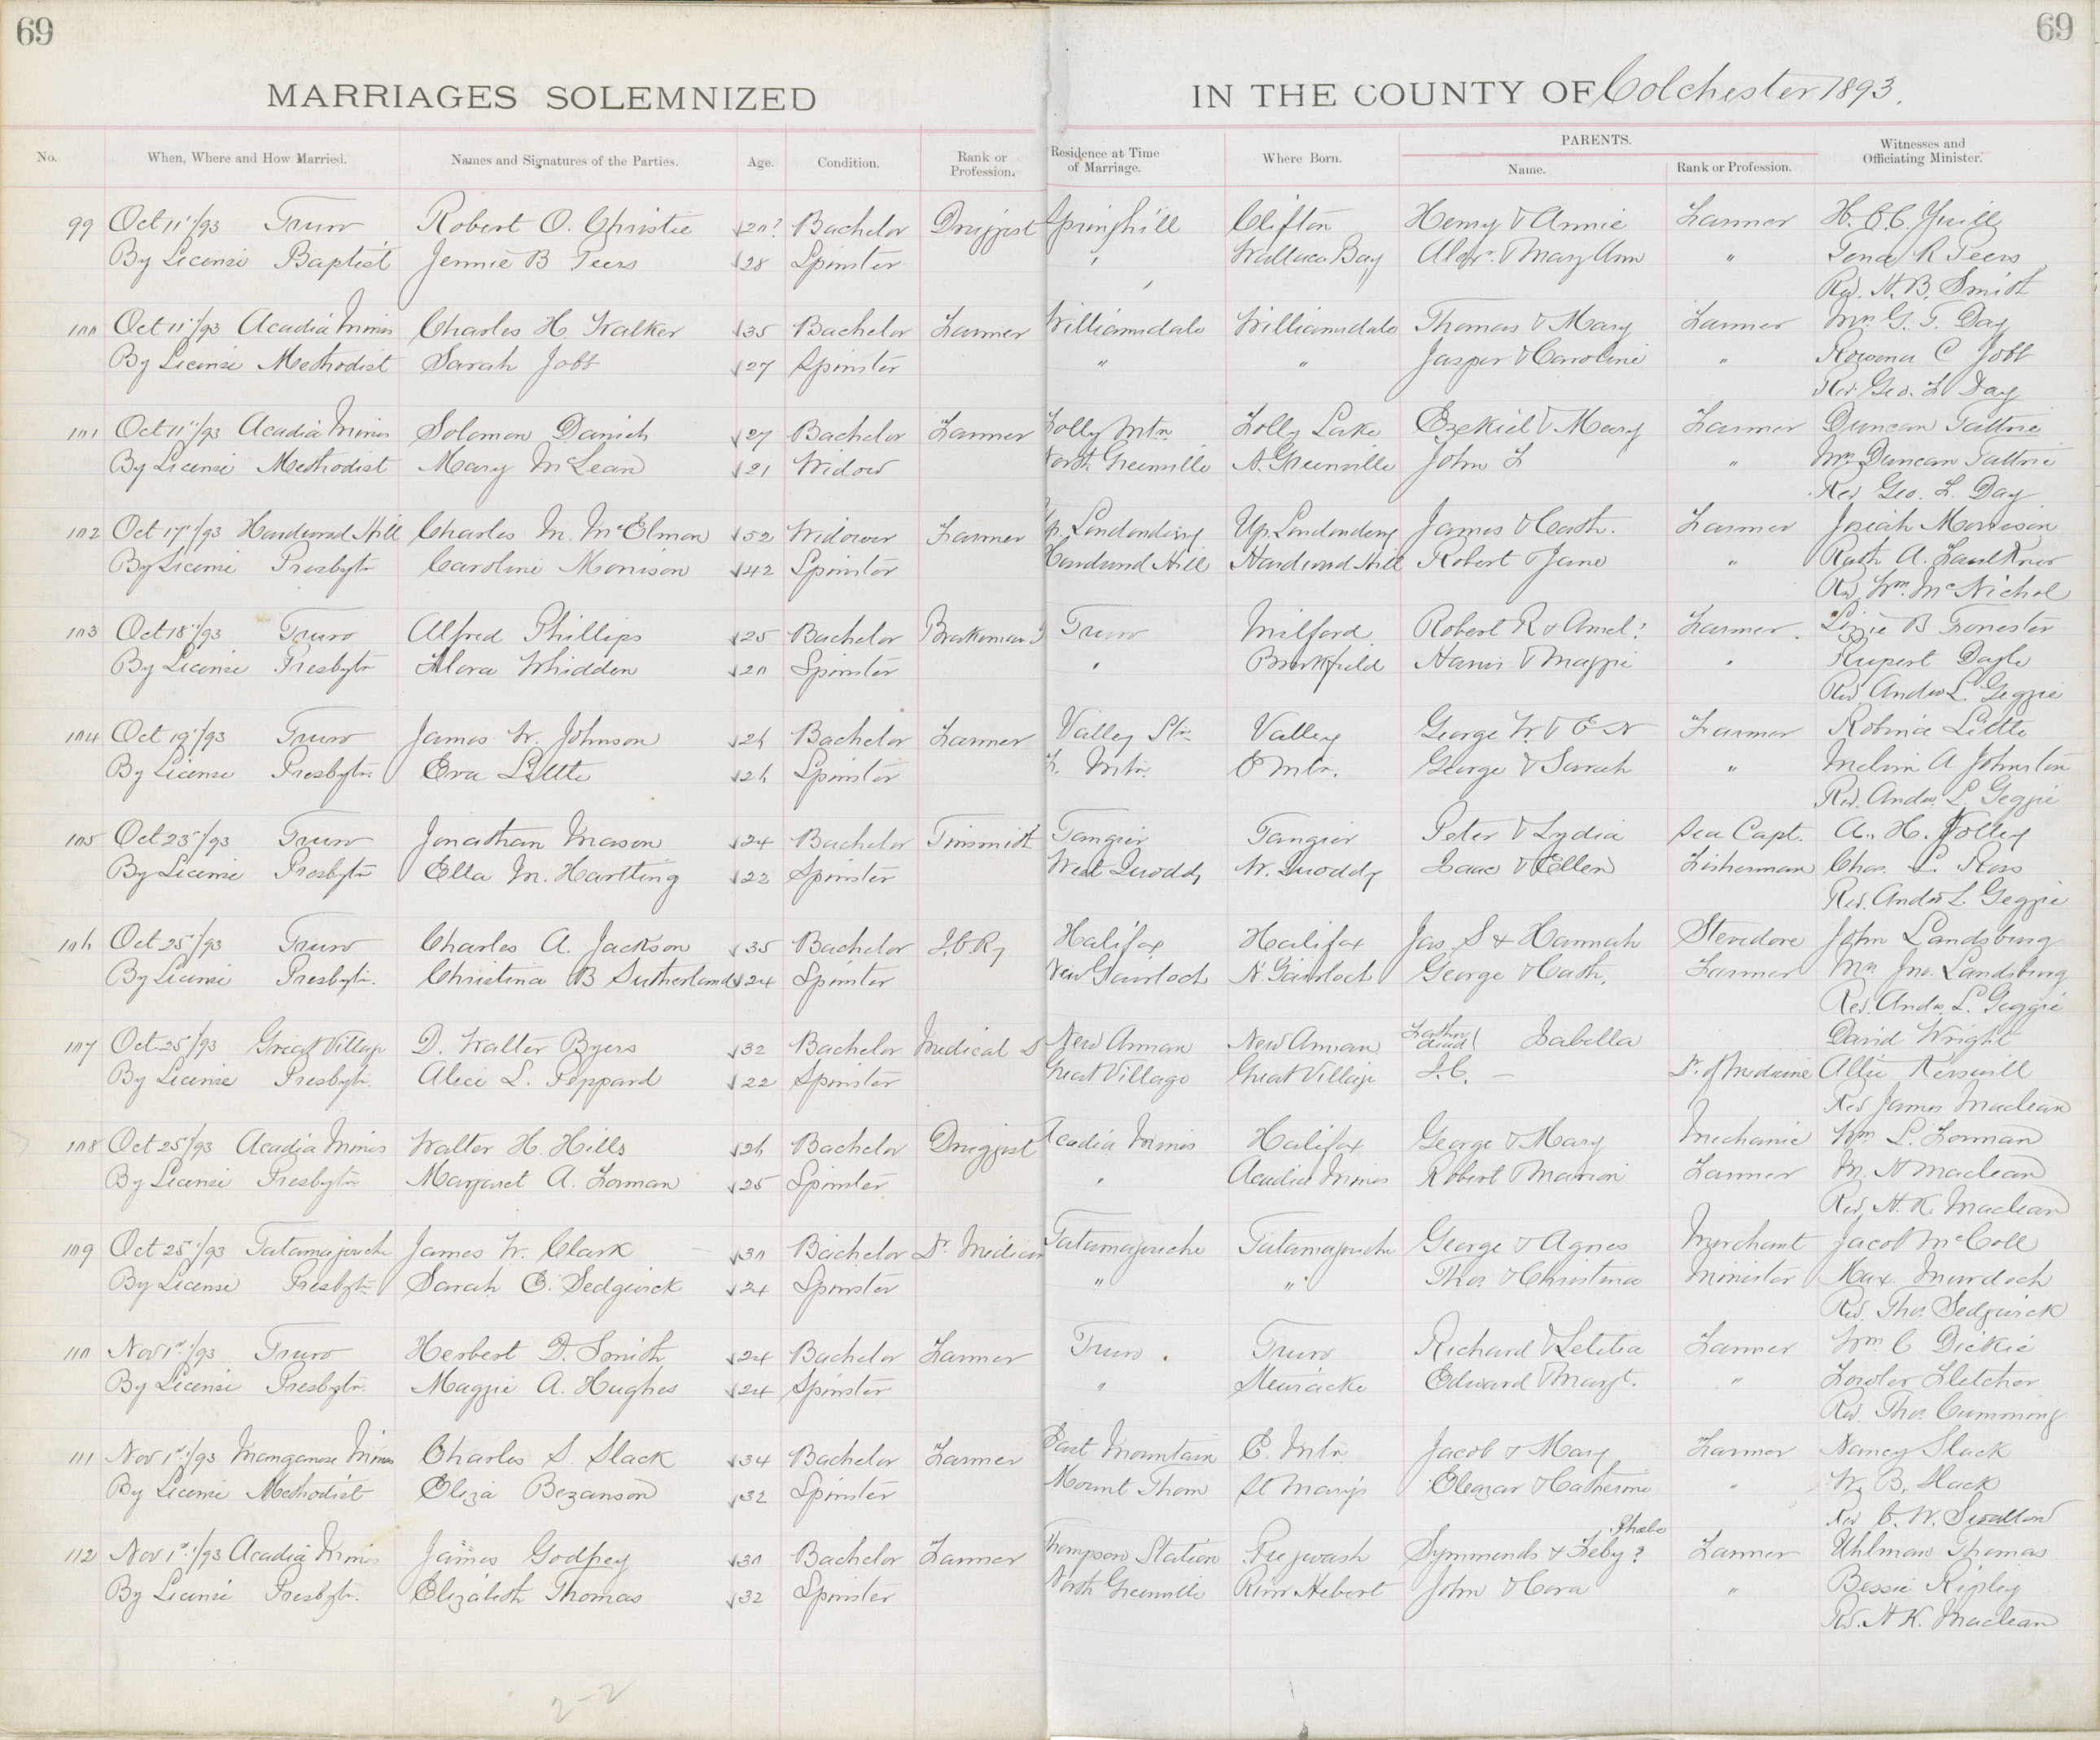 69
69
MARRIAGES SOLEMNIZED
IN THE COUNTY OF Colchester 1893.
No. When, Where and How Married. Names and Signatures of the Parties. Age. Condition. Rank or Profession. Residence at Time of Marriage. Where Born. PARENTS. Name. Rank or Profession. Witnesses and Officiating Minister.
99 Oct 11"/93 Truro Robert O. Christie 20? Bachelor Druggist Springhill Clifton Henry & Annie Farmer H. C. C. Yuill
By License Baptist Jennie B Teers 28 Spinster " Wallace Bay Alexr. & Mary Ann " Tena R Teers
Rev. H. B. Smith
100 Oct 11"/93 Acadia Mines Charles H. Walker 35 Bachelor Farmer Williamsdale Williamsdale Thomas & Mary Farmer Mrs G. F. Day
By License Methodist Sarah Jobb 27 Spinster " " Jasper & Caroline " Rowena C Jobb
Rev. Geo. F. Day
101 Oct 11"/93 Acadia Mines Solomon Danich 27 Bachelor Farmer Folly Mtn. Folly Lake Ezekiel & Mary Farmer Duncan Tattrie
By License Methodist Mary McLean 21 Widow North Greenville N. Greenville John F " Mrs Duncan Tattrie
Rev Geo. F. Day
102 Oct 17"/93 Hardwood Hill Charles M. McElmon 52 Widower Farmer Up. Londonderry Up. Londonderry James & Cath. Farmer Josiah Morrison
By License Presbytn Caroline Morrison 42 Spinster Hardwood Hill Hardwood Hill Robert & Jane " Ruth A. Faulkner
Rev. Wm. McNichol
103 Oct 18"/93 Truro Alfred Phillips 25 Bachelor Brakeman Truro Milford Robert R & Amel? Farmer. Lizzie B Forrester
By License Presbytn Flora Whidden 20 Spinster " Brookfield Harris & Maggie " Rupert Dayle
Rev Andw L. Geggie
104 Oct 19"/93 Truro James W. Johnson 26 Bachelor Farmer Valley Stn Valley George W. & E N Farmer Robina Little
By License Presbytn. Eva Little 26 Spinster E. Mtn. E Mtn. George & Sarah " Melvin A Johnston
Rev. Andw. L Geggie
105 Oct 23"/93 Truro Jonathan Mason 24 Bachelor Tinsmith Tangier Tangier Peter & Lydia Sea Capt. A. H. Jolley
By License Presbytn Ella M. Hartling 22 Spinster West Quoddy W. Quoddy Isaac & Ellen Fisherman Chas. L. Ross
Rev. Andw L. Geggie
106 Oct 25"/93 Truro Charles A. Jackson 35 Bachelor I.C.Ry Halifax Halifax Jas. S & Hannah Stevedore John Landsburg
By License Presbytn. Christina B Sutherland 24 Spinster New Gairloch N. Gairloch George & Cath. Farmer Mrs Jno. Landsburg
Rev. Andw. L. Geggie
107 Oct 25"/93 Great Village D. Walter Byers 32 Bachelor Medical S New Annan New Annan Father dead Isabella David Wright
By License Presbytn. Alice L. Peppard 22 Spinster Great Village Great Village J.C. — Dr. of Medicine Allie Kerswill
Rev James Maclean
108 Oct 25"/93 Acadia Mines Walter H. Hills 26 Bachelor Druggist Acadia Mines Halifax George & Mary Mechanic Wm L. Forman
By License Presbytn Margaret A. Forman 25 Spinster " Acadia Mines Robert & Marion Farmer M. H Maclean
Rev. H. K. Maclean
109 Oct 25"/93 Tatamagouche James W. Clark 30 Bachelor Dr. Medicine Tatamagouche Tatamagouche George & Agnes Merchant Jacob McColl
By License Presbytn Sarah C. Sedgwick 24 Spinster " " Thos. & Christina Minister Max Murdoch
Rev. Thos. Sedgwick
110 Nov 1st/93 Truro Herbert D. Smith 24 Bachelor Farmer Truro. Truro Richard & Letitia Farmer Wm. C Dickie
By License Presbytn. Maggie A. Hughes 24 Spinster " Edward & Margt. " Fowler Fletcher
Rev. Thos. Cumming
111 Nov 1st/93 Manganese Mines Charles S. Slack 34 Bachelor Farmer East Mountain E. Mtn. Jacob & Mary Farmer Nancy Slack
By License Methodist Eliza Bezanson 32 Spinster Mount Thom St Mary's Eleazar & Catherine " W. B. Slack
Rev C. W. Swallow
Phoebe
112 Nov 1st/93 Acadia Mines James Godfrey 30 Bachelor Farmer Thompson Station Pugwash Symmonds & Feby? Farmer Uhlman Thomas
By License Presbytn. Elizabeth Thomas 32 Spinster North Greenville River Hebert John & Cora " Bessie Ripley
Rev. H K. Maclean
2-2